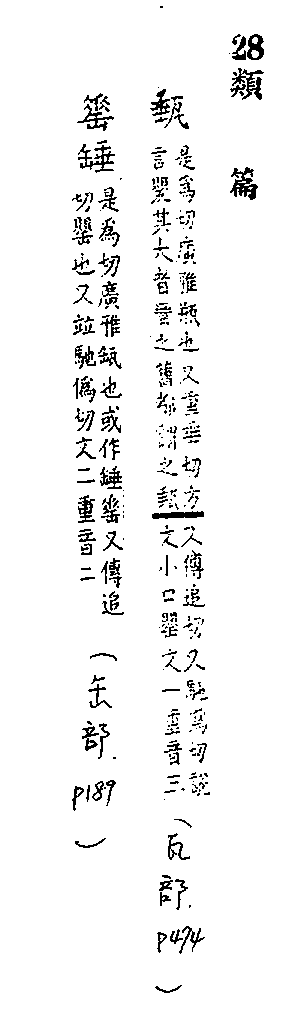 28類篇
是為切廣雅瓶也又重垂切方
言罌其大者
之舊都謂之
又傳追切又馳為切說
文小口罌文一重音三
(瓦部.P474)
罃𦈢
是為切廣雅瓴也或作錘罃又傳追
切罌也又竝馳偽切文二重音二
(缶部.P189)